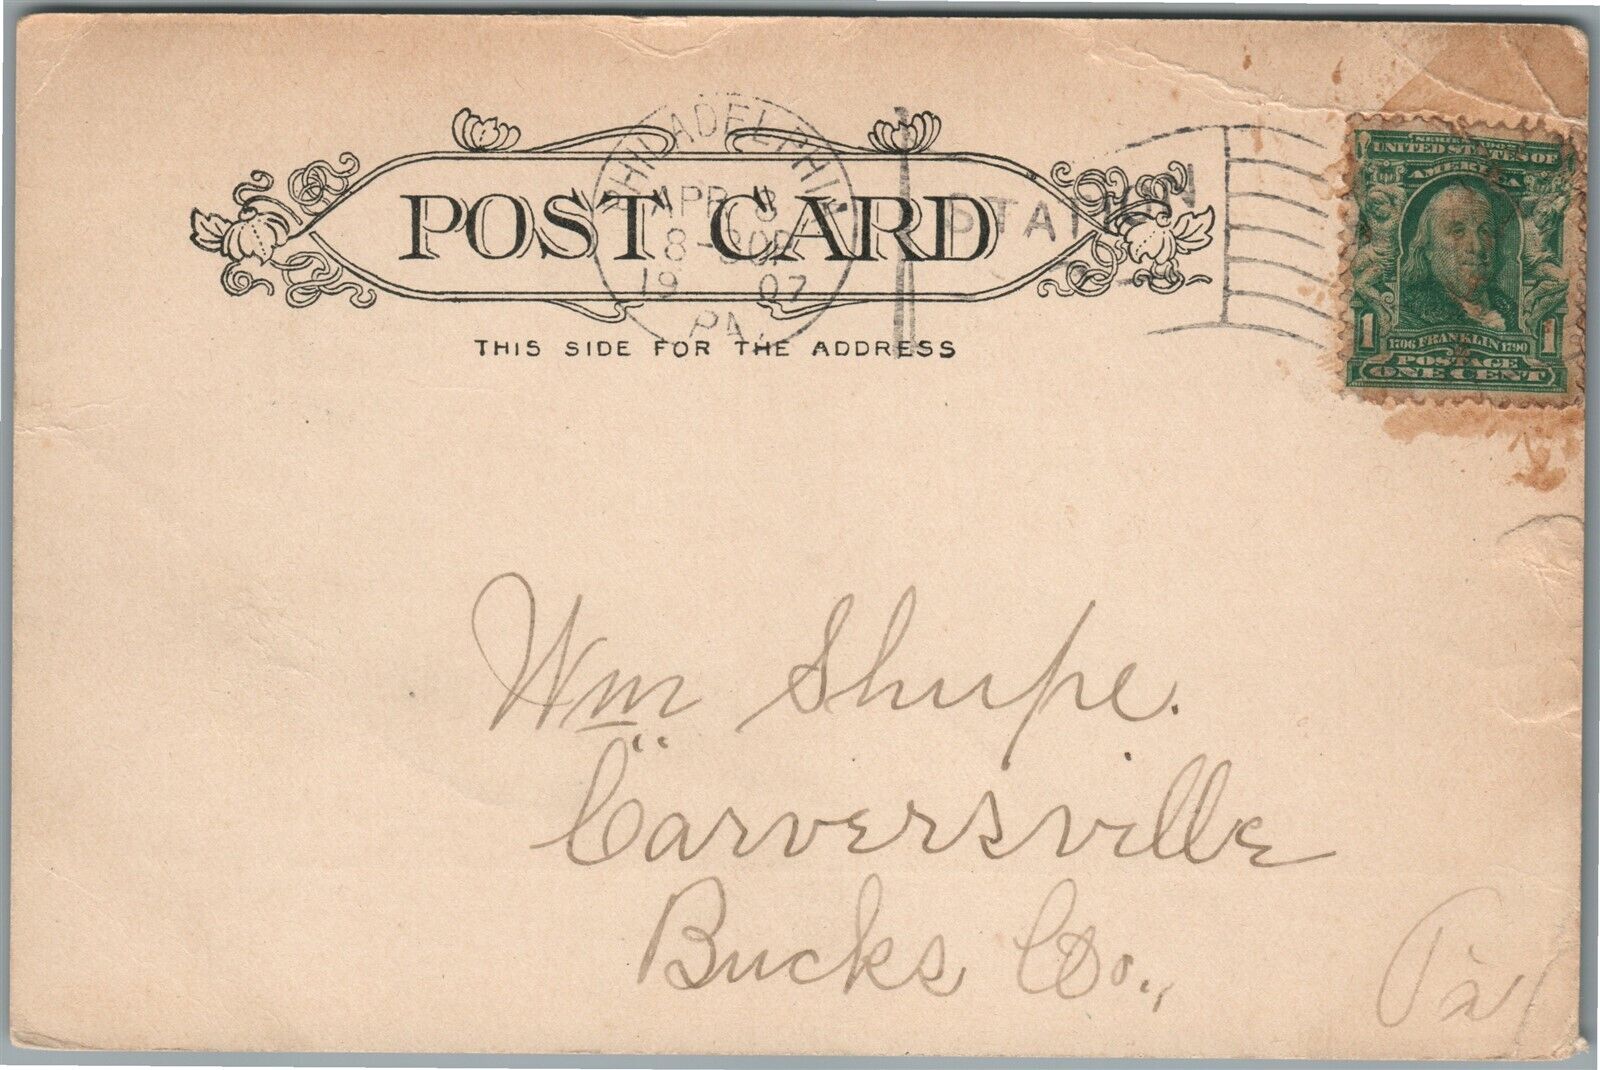 PHILADELPHIA
APR 3
19 07
PA.
STATION
POST CARD
THIS SIDE FOR THE ADDRESS
UNITED STATES OF
AMERICA
1 1706 FRANKLIN 1790 1
POSTAGE
ONE CENT
Wm Shupe.
Carversville
Bucks Co.,
Pa